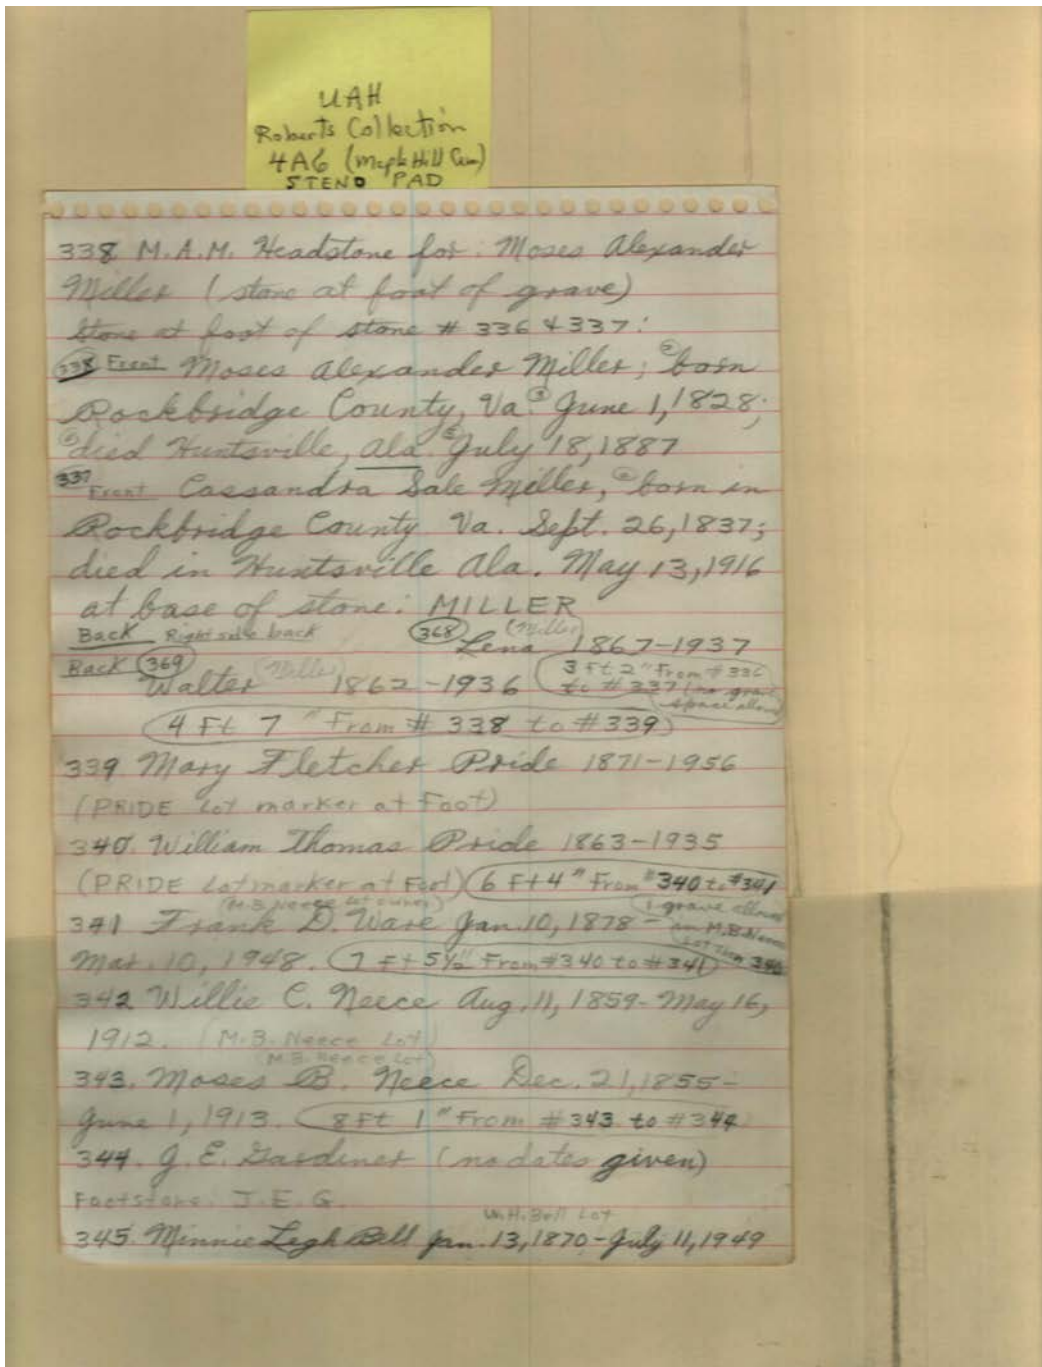 UAH
Roberts Collection
4A6 (Maple Hill Cem)
STENO PAD
338 M.A.M. Headstone for: Moses Alexander
Miller (stone at foot of grave)
Stone at foot of stone # 336 & 337:
338 Front Moses Alexander Miller; born
Rockbridge County, Va. June 1, 1828;
died Huntsville, Ala. July 18, 1887
337 Front Cassandra Sale Miller, born in
Rockbridge County Va. Sept. 26, 1837;
died in Huntsville Ala. May 13, 1916
at base of stone: MILLER
Back Right side back 368 Lena (Miller) 1867-1937
Back 369 Walter (Miller) 1862-1936
3 Ft 2" From # 336
to # 337 (no grave
space allow
4 Ft 7 " From # 338 to # 339)
339. Mary Fletcher Pride 1871-1956
(PRIDE Lot marker at Foot)
340. William Thomas Pride 1863-1935
(PRIDE Lot marker at Foot) 6 Ft 4" From #340 to #341
(M.B. Neece lot owner) 1 grave allowed
341 Frank D. Ware Jan. 10, 1878 - in M.B. Neece
Lot 340
Mar. 10, 1948. 7 Ft 5½" From #340 to #341
342 Willie C. Neece Aug. 11, 1859- May 16,
1912. (M.B. Neece Lot)
(M.B. Neece Lot)
343. Moses B. Neece Dec. 21, 1855-
June 1, 1913. 8 Ft 1" From #343 to #344
344. J. E. Gardiner (no dates given)
Footstone J.E.G.
W.H. Bell Lot
345. Minnie Legh Bell Jan. 13, 1870-July 11, 1949